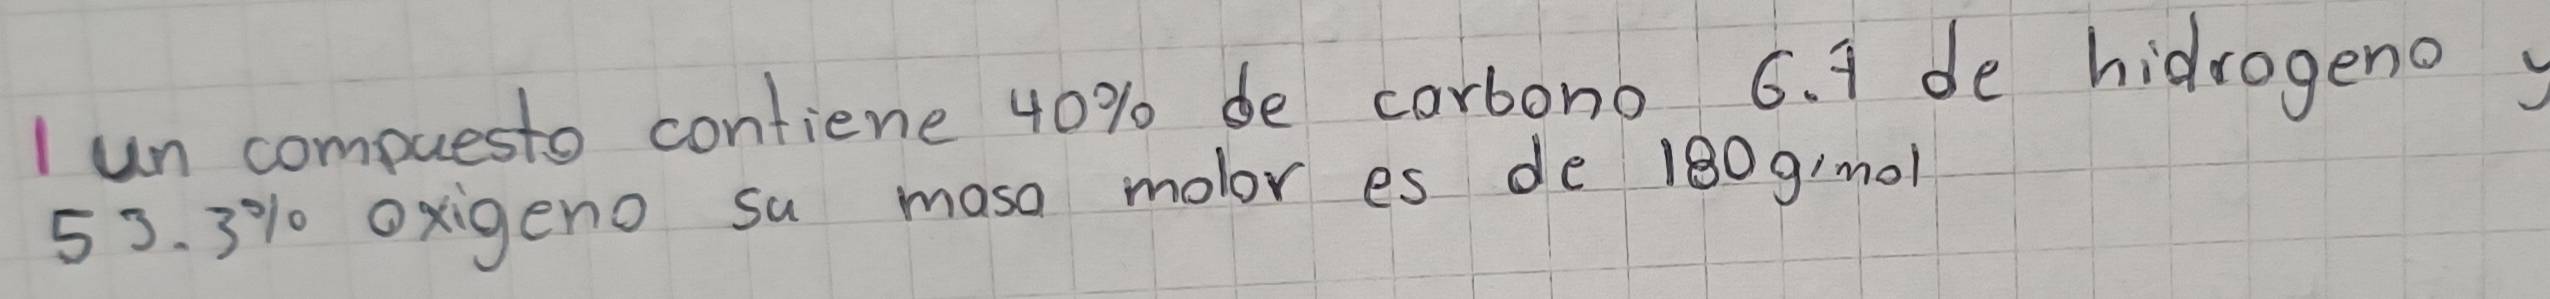 1 un compuesto contiene 40% de carbono 6.7 de hidrogeno y
53.3% oxigeno su masa molar es de 180g/mol